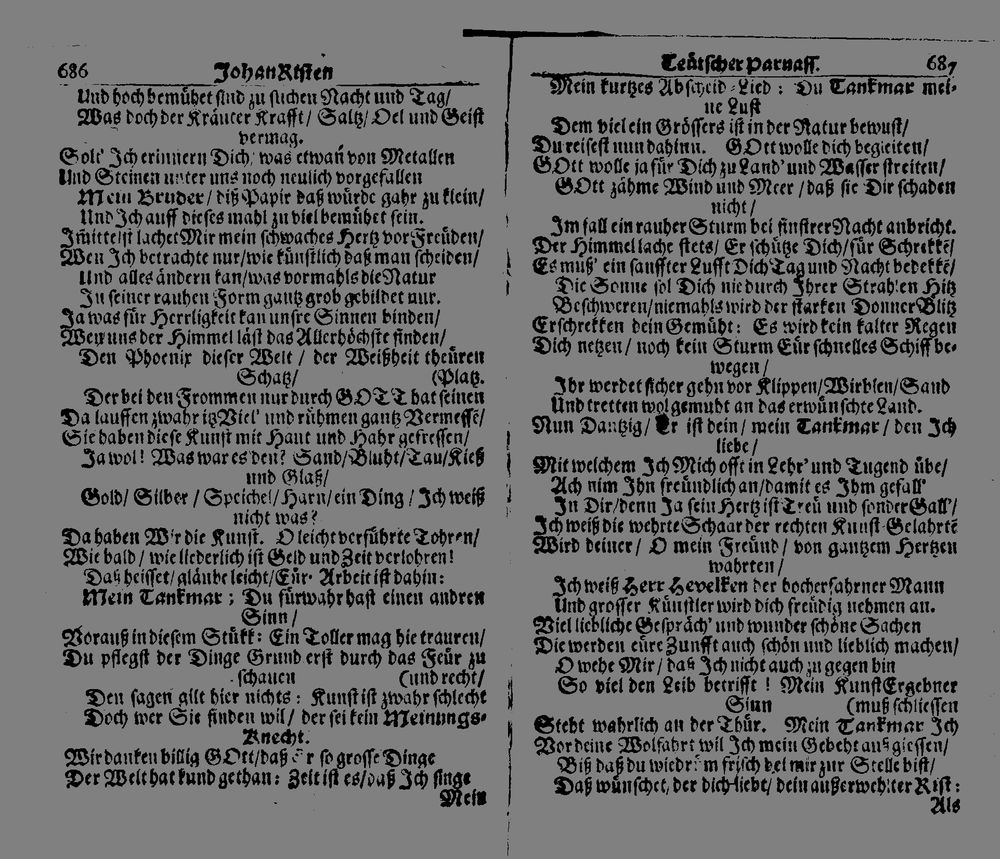 686
Johan Risten
Und hoch bemühet sind zu suchen Nacht und Tag/
Was doch der Kräuter Krafft/ Saltz/ Oel und Geist
vermag.
Solt' Ich erinnern Dich, was etwan von Metallen
Und Steinen unter uns noch neulich vorgefallen
Mein Bruder/ diß Papir daß würde gahr zu klein/
Und Ich auff dieses mahl zu viel bemühet sein.
Jmittelst lachet Mir mein schwaches Hertz vor Freüden/
Wen Ich betrachte nur/ wie künstlich daß man scheiden/
Und alles ändern kan/ was vormahls die Natur
In seiner rauhen Form gantz grob gebildet nur.
Ja was für Herrligkeit kan unsre Sinnen binden/
Wen uns der Himmel läst das Allerhöchste finden/
Den Phoenix dieser Welt / der Weißheit theüren
Schatz/ (Platz.
Der bei den Frommen nur durch GOTT hat seinen
Da lauffen zwahr itz Viel' und rühmen gantz Vermesse/
Sie haben diese Kunst mit Haut und Hahr gefressen/
Ja wol! Was war es den? Sand/ Bluht/ Tau/ Kieß
und Glaß/
Gold/ Silber / Speichel/ Harn/ ein Ding / Ich weiß
nicht was?
Da haben Wir die Kunst. O leicht verführte Tohren/
Wie bald / wie liederlich ist Geld und Zeit verlohren!
Daß heisset/ gläube leicht/ Eür Arbeit ist dahin:
Mein Tankmar ; Du fürwahr hast einen andren
Sinn /
Vorauß in diesem Stükk: Ein Toller mag hie trauren/
Du pflegst der Dinge Grund erst durch das Feür zu
schauen (und recht/
Den sagen gilt hier nichts: Kunst ist zwahr schlecht
Doch wer Sie finden wil/ der sei kein Meinungs-
Knecht.
Wir danken billig GOtt/ daß Er so grosse Dinge
Der Welt hat kund gethan: Zeit ist es/ daß Ich singe
Mein
Teütscher Parnass.
687
Mein kurtzes Abscheid-Lied : Du Tankmar mei-
ne Lust
Dem viel ein Grössers ist in der Natur bewust/
Du reisest nun dahinn. GOtt wolle dich begleiten/
GOtt wolle ja für Dich zu Land' und Wasser streiten/
GOtt zähme Wind und Meer / daß sie Dir schaden
nicht/
Im fall ein rauher Sturm bei finstrer Nacht anbricht.
Der Himmel lache stets/ Er schütze Dich/ für Schrekkē/
Es muß' ein sanffter Lufft Dich Tag und Nacht bedekkē/
Die Sonne sol Dich nie durch Ihrer Strahlen Hitz
Beschweren/ niemahls wird der starken Donner Blitz
Erschrekken dein Gemüht: Es wird kein kalter Regen
Dich netzen/ noch kein Sturm Eür schnelles Schiff be-
wegen /
Ihr werdet sicher gehn vor Klippen/ Wirblen/ Sand
Und tretten wolgemuht an das erwünschte Land.
Nun Dantzig/ Er ist dein/ mein Tankmar / den Ich
liebe/
Mit welchem Ich Mich offt in Lehr' und Tugend übe/
Ach nim Ihn freündlich an/ damit es Ihm gefall'
In Dir/ denn Ja sein Hertz ist Treü und sonder Gall'/
Ich weiß die wehrte Schaar der rechten Kunst-Gelahrtē
Wird deiner/ O mein Freünd/ von gantzem Hertzen
wahrten/
Ich weiß Herr Hevelken der hocherfahrner Mann
Und grosser Künstler wird dich freüdig nehmen an.
Viel liebliche Gespräch' und wunder schöne Sachen
Die werden eüre Zunfft auch schön und lieblich machen/
O wehe Mir/ daß Ich nicht auch zu gegen bin
So viel den Leib betrifft ! Mein KunstErgebner
Sinn (muß schliessen
Steht wahrlich an der Thür. Mein Tankmar Ich
Vor deine Wolfahrt wil Ich mein Gebeht aus giessen/
Biß daß du wiedrum frisch bei mir zur Stelle bist/
Daß wünschet, der dich liebt/ dein außerwehlter Rist:
Als